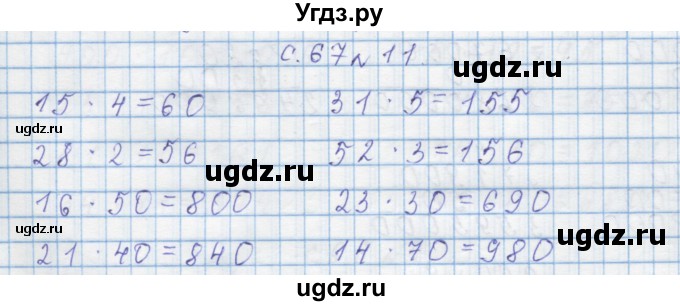 Угдз.ру
с. 67 № 11.
ugdz.ru
15 · 4 = 60 31 · 5 = 155
ugdz.ru ugdz.ru
28 · 2 = 56 52 · 3 = 156
ugdz.ru
16 · 50 = 800 23 · 30 = 690
ugdz.ru
21 · 40 = 840 14 · 70 = 980
ugdz.ru ugdz.ru